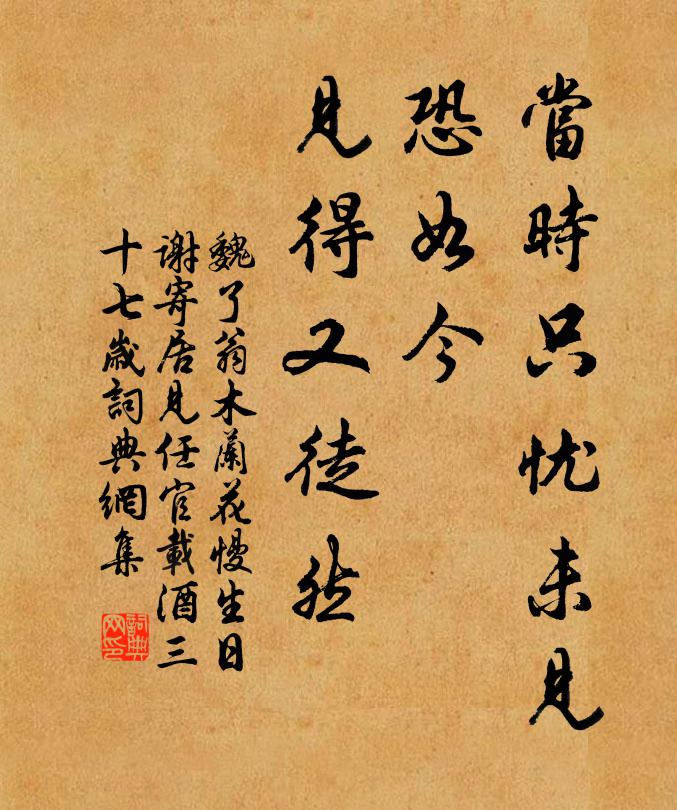 當時只忧未見
恐如今
見得又徒然
魏了翁木蘭花慢生日
謝寄居見任官載酒三
十七歲詞典網集
詞典
网印